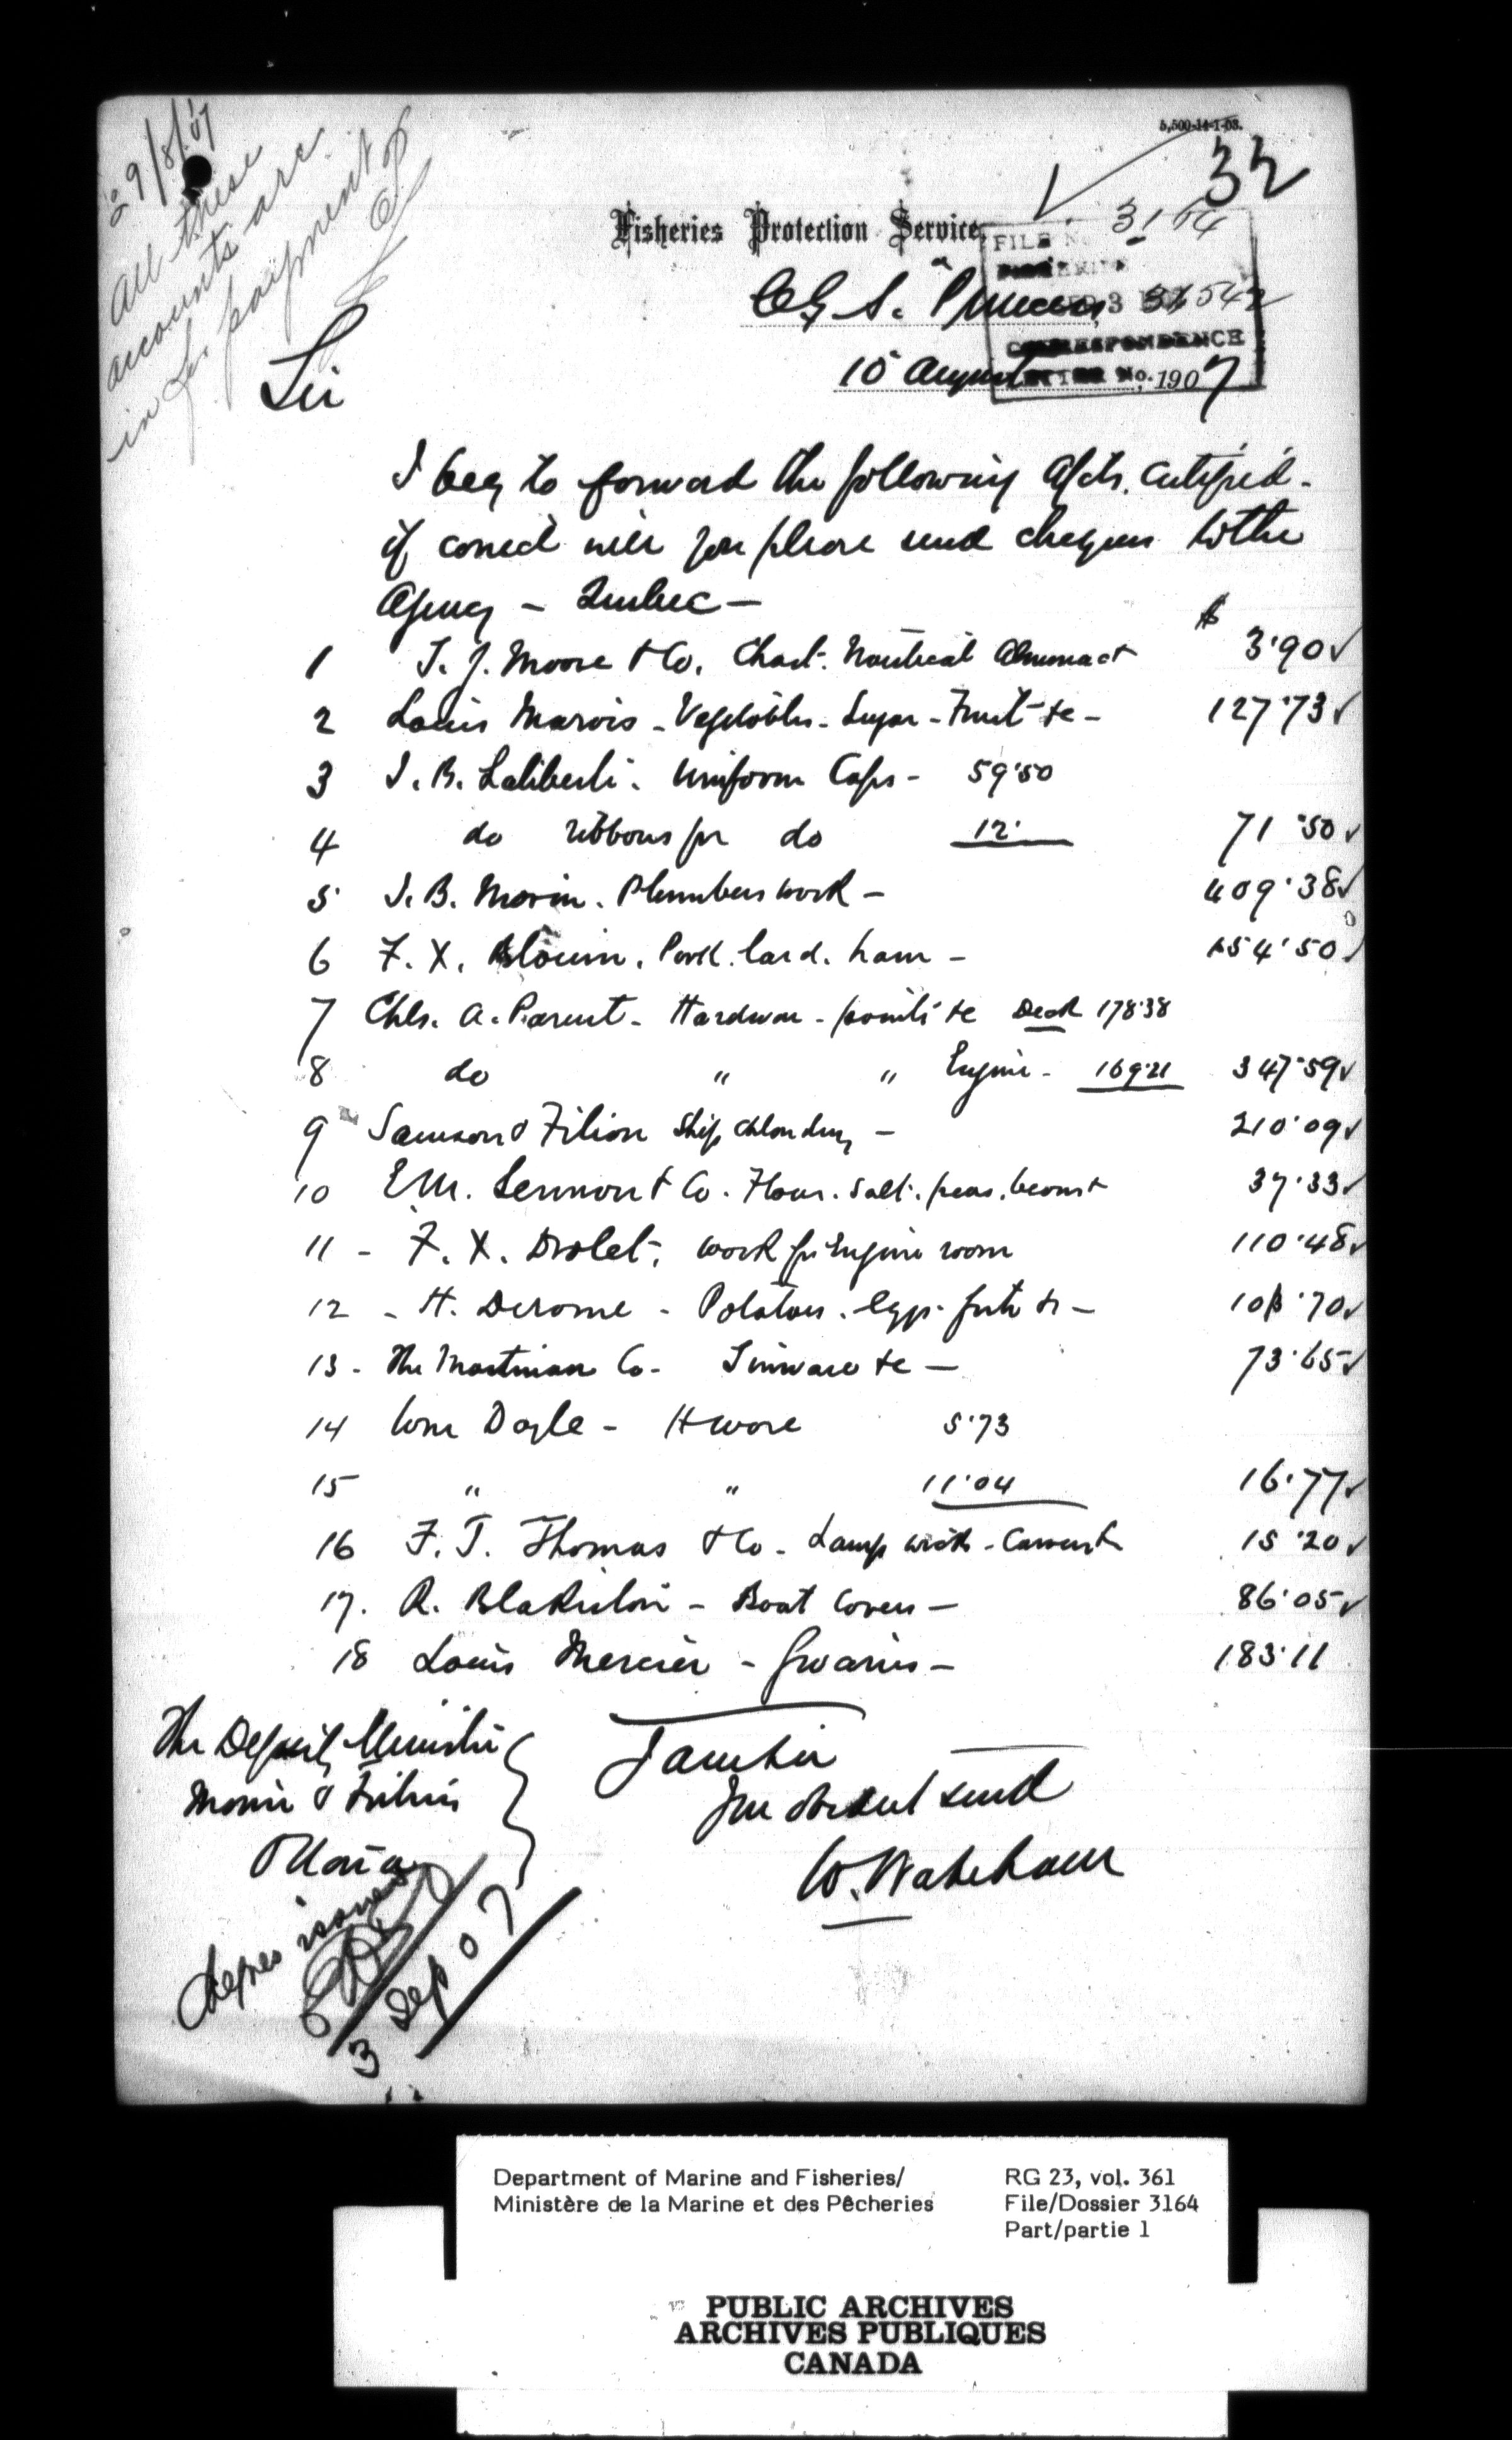 29/8/07
All these
accounts are
in for payment
5,500-14-1-03.
32
3164
Fisheries Protection Service,
FILE No.
FISHERIES
C G S. "Princess"
3 31542
CORRESPONDENCE
15 August LETTER No. 1907
Sir
I beg to forward the following A/cts. Certified.
if correct will you please send cheques to the
Agency - Quebec -
$
1 T. J. Moore & Co. Chart. Nautical Almanac + 3.90 ✓
2 Louis Marois - Vegetables - Sugar - Fruit &c - 127.73 ✓
3 J. B. Laliberté. Uniform Caps - 59.50
4 do ribbons for do 12. 71.50 ✓
5 J. B. Morin. Plumbers work - 409.38 ✓
6 F. X. Blouin. Pork. lard. ham - 154.50 ✓
7 Chls. A. Parent - Hardware - paints &c Deck 178.38
8 do " " Engine - 169.21 347.59 ✓
9 Samson & Filion Ship Chlandery - 210.09 ✓
10 E M. Lermont & Co. Flour. Salt. peas. beans + 37.33 ✓
11 - F. X. Drolet, work for Engine room 110.48 ✓
12 - H. Derome - Potatoes. Eggs. &c - 108.70 ✓
13 - The Martineau Co - Tinware &c - 73.65 ✓
14 Wm Doyle - Hware 5.73
15 " " 11.04 16.77 ✓
16 F. T. Thomas & Co - Lamp wick - Cement 15.20 ✓
17. R. Blakiston - Boat Covers - 86.05 ✓
18 Louis Mercier - Groceries - 183.11
The Deputy Minister
Marine & Fisheries
Ottawa
I am Sir
Your obedient servt
W. Wakeham
Cheques issued
3 Sep 07
Department of Marine and Fisheries/
Ministère de la Marine et des Pêcheries
RG 23, vol. 361
File/Dossier 3164
Part/partie 1
PUBLIC ARCHIVES
ARCHIVES PUBLIQUES
CANADA